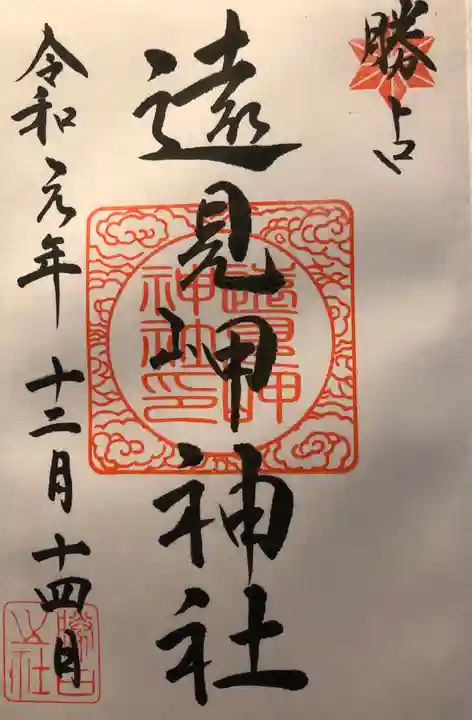 勝占
遠見岬神社
遠見岬
神社印
令和元年十二月十四日
勝占
之社